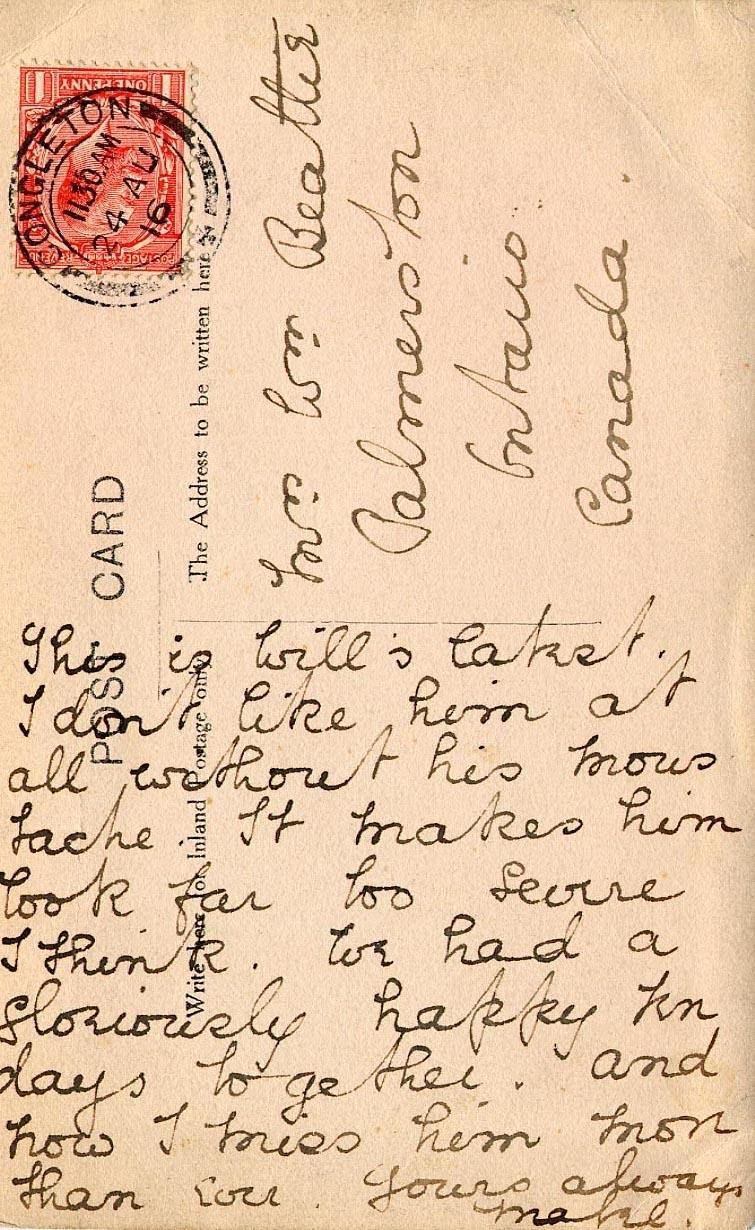 POST CARD
The Address to be written here.
Write here for Inland Postage only
ONE PENNY
1 1
POSTAGE REVENUE
CONGLETON
11 30 AM
24 AU
16
Mrs Wm Beattie
Palmerston
Ontario.
Canada.
This is Will's latest.
I don't like him at
all without his mous
tache. It makes him
look far too severe
I think. We had a
gloriously happy ten
days together. and
now I miss him more
than ever. Yours always
Mabel.